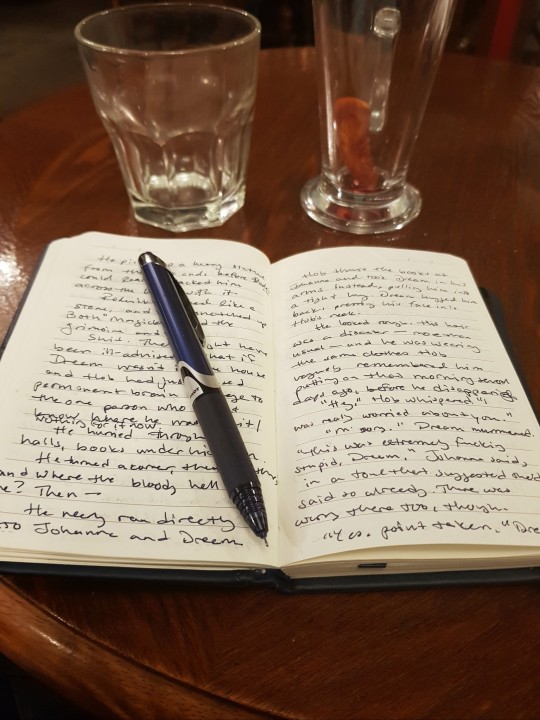 He pi a heavy statue
from the ends, before
could cked him
across the with it.
like a
stone, and snatched up
Both magic the
grimoire and
Shit. The ght have
been ill-advised. What if
Dream wasn't house
and Hob had just ed
permanent brain ge to
the one person who
know where he was
nothing for it now
He hurried through
halls, books under his
He turned a corner, then
and where the bloody hell
? Then —
He nearly ran directly
to Johanna and Dream
Hob threw the books at
Johanna and took Dream in his
arms instead, pulling him into
a tight hug. Dream hugged him
back, pressing his face into
Hob's neck.
He looked rough. His hair
was a disaster — more than
usual — and he was wearing
the same clothes Hob
vaguely remembered him
putting on that morning several
days ago before he disappeared.
"Hey," Hob whispered. "I
was really worried about you."
"I'm sorry." Dream murmured.
"This was extremely fucking
stupid, Dream," Johanna said,
in a tone that suggested she'd
said so already. There was
worry there too, though.
"Yes. point taken." Dre